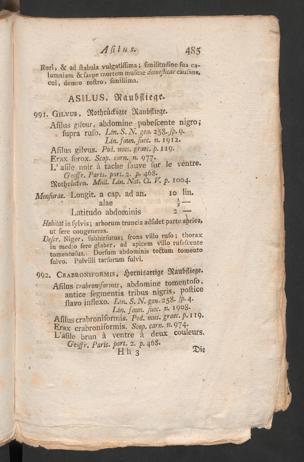 Asilus. 485
Rori, & ad stabula vulgatissima; similitudine sua calumniam
& saepe mortem muscae domesticae causans,
cui, demto rostro, simillima.
ASILUS. Raubfliege.
991. GILVUS, Rothrückigte Raubfliege.
Asilus gilvus, abdomine pubescente nigro;
supra rufo. Lin. S. N. gen. 258. sp. 9.
Lin. faun. suec. n. 1912.
Asilus gilvus. Pod. mus. graec. p. 119.
Erax ferox. Scop. carn. n. 977.
L'asile noir à tache fauve sur le ventre.
Geoffr. Paris. part. 2. p. 468.
Rothrücken. Müll. Lin. Nat. G. V. p. 1004.
Mensurae. Longit. a cap. ad an. 10 lin.
alae
Latitudo abdominis 2 —
Habitat in sylvis; arborum truncis adsidet parte
ut fere congeneres.
Descr. Niger, subhirsutus; frons villo rufo; thorax
in medio fere glaber, ad apicem villo rufescente
tomentosus. Dorsum abdominis tectum tomento
fulvo. Pulvilli tarsorum fulvi.
992. CRABRONIFORMIS, Hornißartige Raubfliege.
Asilus crabroniformis, abdomine tomentoso,
antice segmentis tribus nigris, postice
flavo inflexo. Lin. S. N. gen. 258. sp. 4.
Lin. faun. suec. n. 1908.
Asilus crabroniformis. Pod. mus. graec. p. 119.
Erax crabroniformis. Scop. carn. n. 974.
L'asile brun à ventre à deux couleurs.
Geoffr. Paris. part. 2. p. 468.
Hh 3 Die